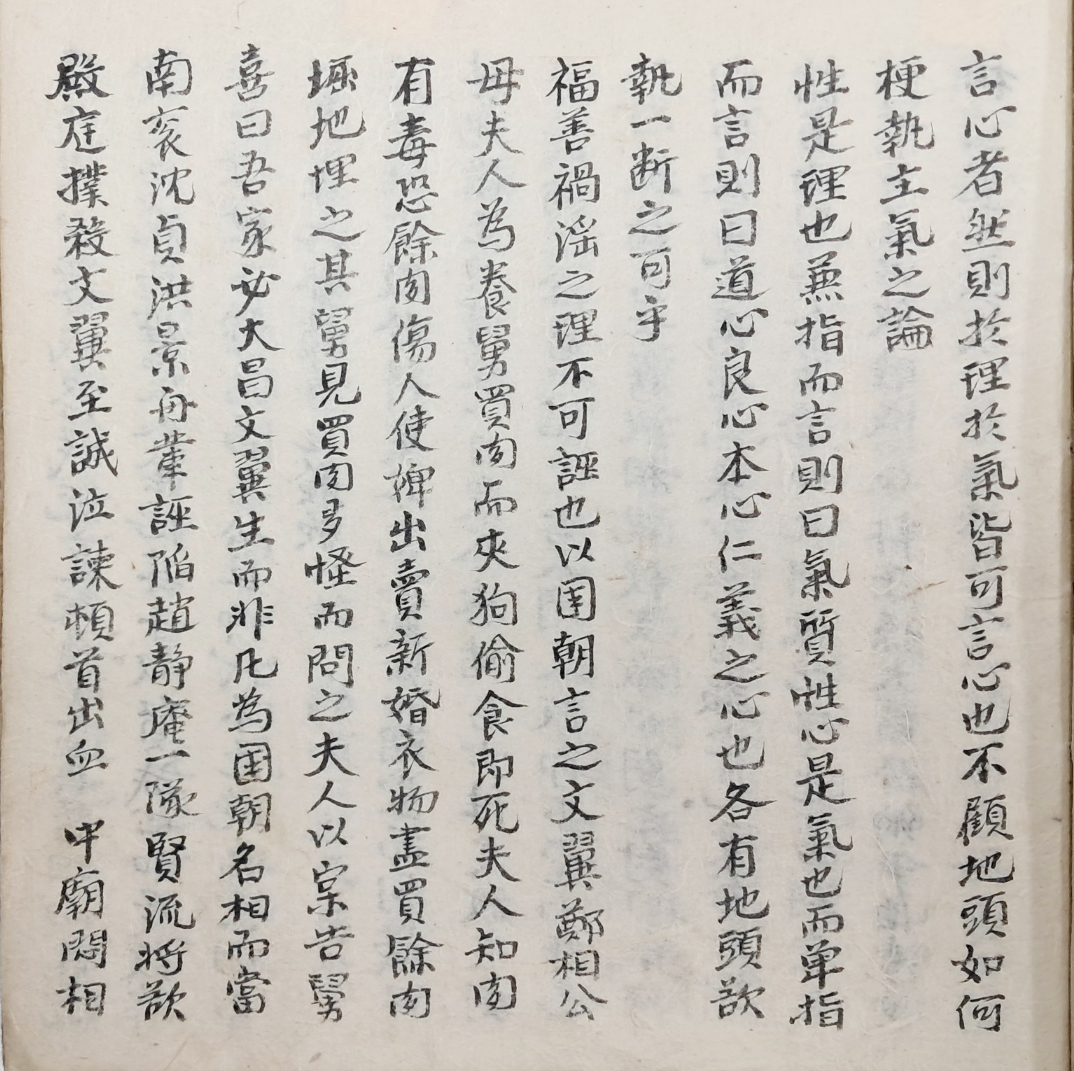 言心者然則於理於氣皆可言心也不顧地頭如何
梗執主氣之論
性是理也兼指而言則曰氣質性心是氣也而單指
而言則曰道心良心本心仁義之心也各有地頭欲
執一断之可乎
福善禍淫之理不可誣也以国朝言之文翼鄭相公
母夫人為養舅買肉而夾狗偷食即死夫人知肉
有毒恐餘肉傷人使婢出賣新婚衣物盡買餘肉
堀地埋之其舅見買肉多怪而問之夫人以宲告舅
喜曰吾家必大昌文翼生而非凡為国朝名相而當
南袞沈貞洪景舟輩誣陷趙静庵一隊賢流將欲
殿庭撲殺文翼至誠泣諫頓首出血 中廟悶相